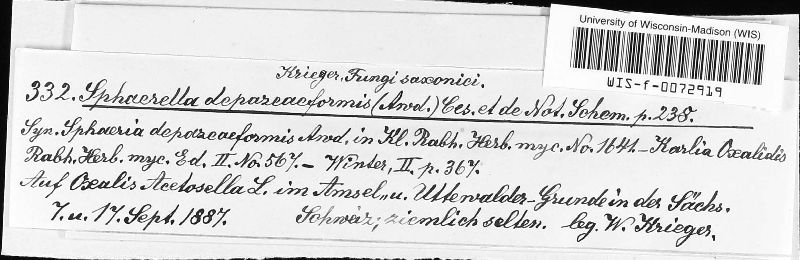 University of Wisconsin-Madison (WIS)
WIS-f-0072919
Krieger, Fungi saxonici.
332. Sphaerella depazeaeformis (Awd.) Ces. et de Not. Schem. p. 238.
Syn. Sphaeria depazeaeformis Awd. in Kl. Rabh. Herb. myc. No. 1641. – Karlia Oxalidis
Rabh. Herb. myc. Ed. II. No. 567. – Winter, II. p. 367.
Auf Oxalis Acetosella L. im Amsel- u. Uttewalder-Grunde in der Sächs.
7. u. 17. Sept. 1887. Schweiz; ziemlich selten. leg. W. Krieger.